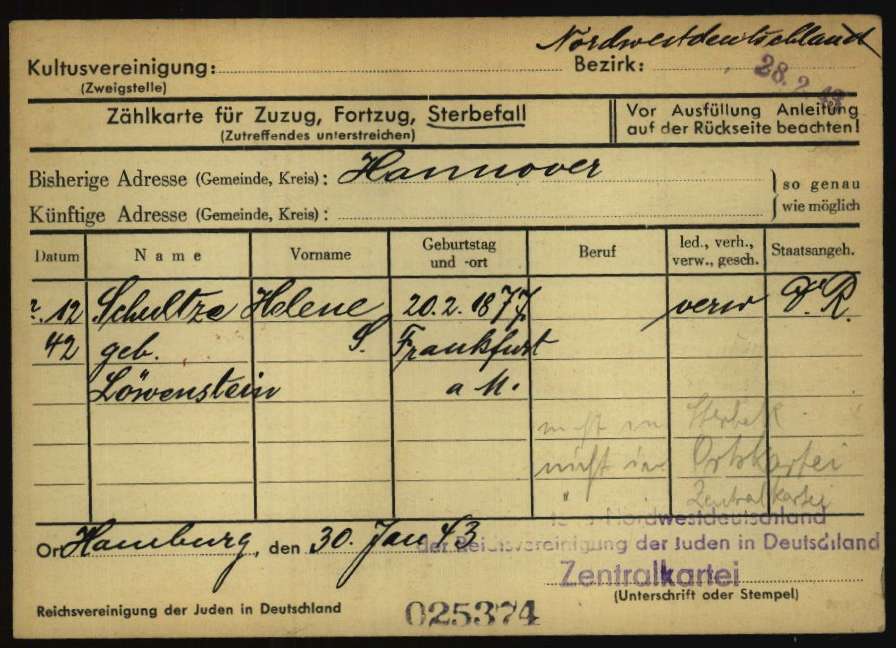 Nordwestdeutschland
Kultusvereinigung: Bezirk:
(Zweigstelle)
28. 2. 43
Zählkarte für Zuzug, Fortzug, Sterbefall
(Zutreffendes unterstreichen)
Vor Ausfüllung Anleitung
auf der Rückseite beachten!
Bisherige Adresse (Gemeinde, Kreis): Hannover
Künftige Adresse (Gemeinde, Kreis):
so genau
wie möglich
Datum Name Vorname Geburtstag und -ort Beruf led., verh., verw., gesch. Staatsangeh.
?. 12 Schultze Helene 20.2.1877 verw D. R.
42 geb. S. Frankfurt
Löwenstein a M.
nicht in Sterbek
nicht in Ortskartei
" Zentralkartei
Nordwestdeutschland
Ort Hamburg, den 30. Jan 43
der Reichsvereinigung der Juden in Deutschland
Zentralkartei
(Unterschrift oder Stempel)
Reichsvereinigung der Juden in Deutschland
025374